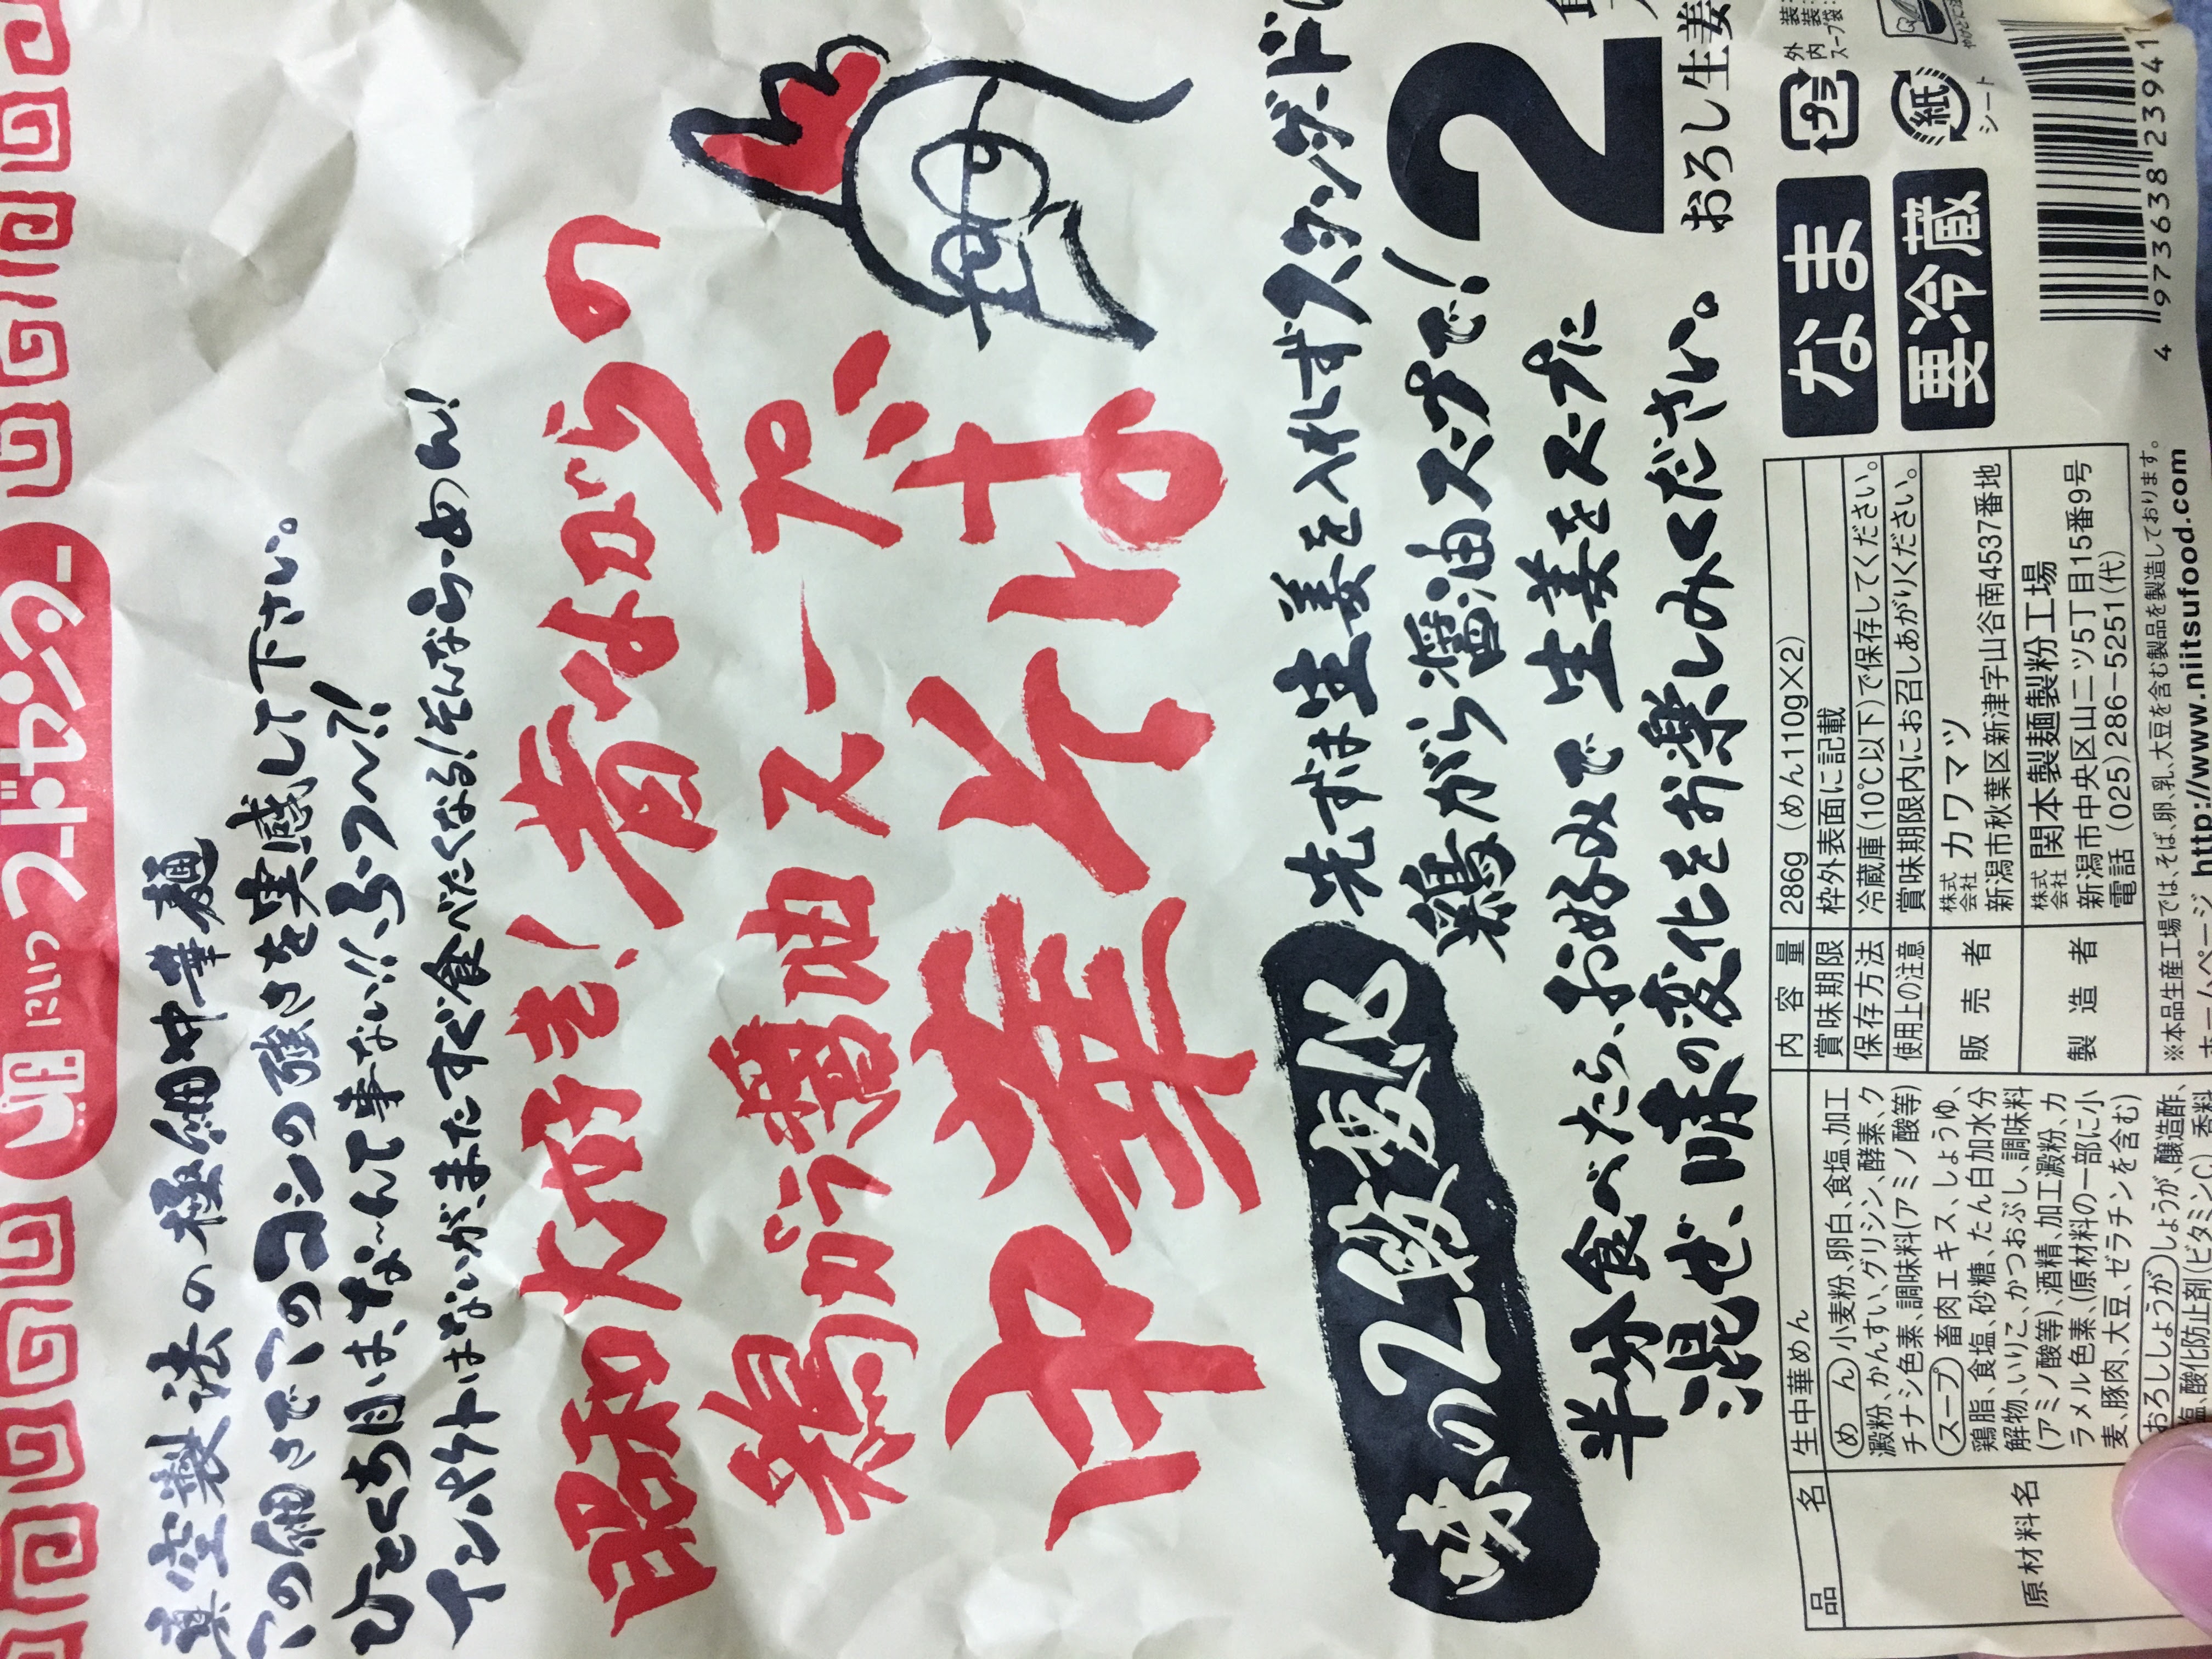 にいつフードセンター
真空製法の極細中華麺
この細さでこのコシの強さを実感して下さい。
ひとくち目は、な〜んて事ない!!、ふつ〜?!
インパクトはないが、またすぐ食べたくなる!そんならーめん!
昭和大好き!昔ながらの
鶏がら醤油スープ
中華そば
味の2段変化
先ずは生姜を入れずスタンダードに
鶏がら醤油スープで!
半分食べたら、お好みで生姜をスープに
混ぜ、味の変化をお楽しみください。
2
おろし生姜
なま
要冷蔵
プラ
外装:
内装:
スープ袋:
紙
シート
4 973638 239411
品名 生中華めん
原材料名
めん 小麦粉、卵白、食塩、加工
澱粉、かんすい、グリシン、酵素、ク
チナシ色素、調味料(アミノ酸等)
スープ 畜肉エキス、しょうゆ、
鶏脂、食塩、砂糖、たん白加水分
解物、いりこ、かつおぶし、調味料
(アミノ酸等)、酒精、加工澱粉、カ
ラメル色素、(原材料の一部に小
麦、豚肉、大豆、ゼラチンを含む)
おろししょうが しょうが、醸造酢、
塩、酸化防止剤(ビタミンC)、香料
内容量 286g (めん110g×2)
賞味期限 枠外表面に記載
保存方法 冷蔵庫(10℃以下)で保存してください。
使用上の注意 賞味期限内にお召しあがりください。
販売者 株式会社 カワマツ
新潟市秋葉区新津字山谷南4537番地
製造者 株式会社 関本製麺製粉工場
新潟市中央区山二ツ5丁目15番9号
電話 (025)286-5251(代)
※本品生産工場では、そば、卵、乳、大豆を含む製品を製造しております。
ホームページ http://www.niitsufood.com